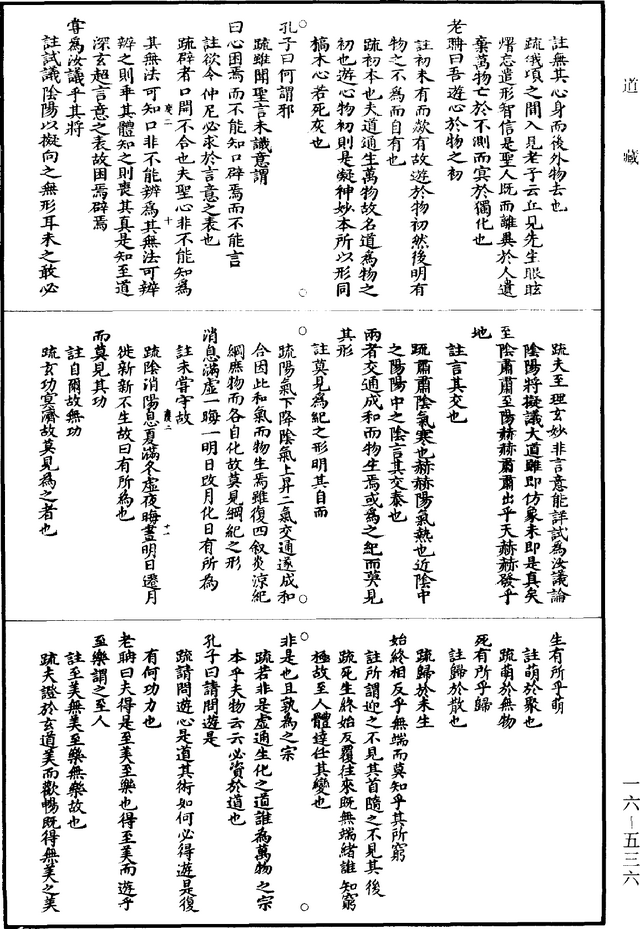 道藏
註無其心身而後外物去也
疏俄頃之間入見老子云丘見先生眼眩
熠忘遣形智信是聖人既而離異於人遺
棄萬物亡於不測而寘於獨化也
老聃曰吾遊心於物之初
註初未有而欻有故遊於物初然後明有
物之不為而自有也
疏初本也夫道通生萬物故名道為物之
初也遊心物初則是凝神妙本所以形同
槁木心若死灰也
孔子曰何謂邪
疏雖聞聖言未識意謂
曰心困焉而不能知口辟焉而不能言
註欲令仲尼必求於言意之表也
疏辟者口開不合也夫聖心非不能知為
其無法可知口非不能辨為其無法可辨
辨之則乖其體知之則喪其真是知至道
深玄超言意之表故困焉辟焉
嘗為汝議乎其將
註試議陰陽以擬向之無形耳未之敢必
疏夫至理玄妙非言意能詳試為汝議論
陰陽將擬議大道雖即仿象未即是真矣
至陰肅肅至陽赫赫肅肅出乎天赫赫發乎
地
註言其交也
疏肅肅陰氣寒也赫赫陽氣熱也近陰中
之陽陽中之陰言其交泰也
兩者交通成和而物生焉或為之紀而莫見
其形
註莫見為紀之形明其自而
疏陽氣下降陰氣上昇二氣交通遂成和
合因此和氣而物生焉雖復四叙炎涼紀
綱庶物而各自化故莫見綱紀之形
消息滿虛一晦一明日改月化日有所為
註未嘗守故
疏陰消陽息夏滿冬虛夜晦晝明日遷月
徙新新不生故曰有所為也
而莫見其功
註自爾故無功
疏玄功冥濟故莫見為之者也
生有所乎萌
註萌於聚也
疏萌於無物
死有所乎歸
註歸於散也
疏歸於未生
始終相反乎無端而莫知乎其所窮
註所謂迎之不見其首隨之不見其後
疏死生終始反覆往來既無端緒誰知窮
極故至人體達任其變也
非是也且孰為之宗
疏若非是虛通生化之道誰為萬物之宗
本乎夫物云云必資於道也
孔子曰請問遊是
疏請問遊心是道其術如何必得遊是復
有何功力也
老聃曰夫得是至美至樂也得至美而遊乎
至樂謂之至人
註至美無美至樂無樂故也
疏夫證於玄道美而歡暢既得無美之美
一六－五三六